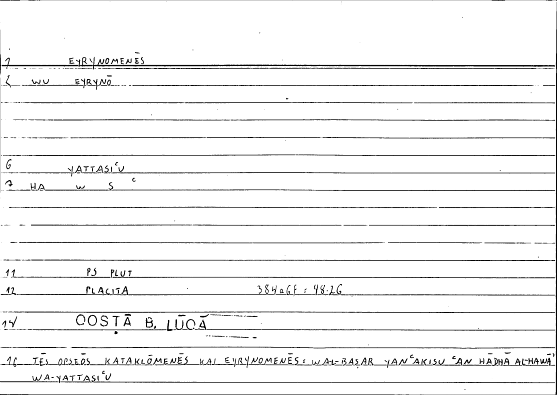 1 EYRYNOMENĒS
2 WU EYRYNŌ
6 YATTASIʿU
7 HA W S ʿ
11 PS PLUT
12 PLACITA 384a6F = 98.26
14 QOSṬĀ B. LŪQĀ
18 TĒS OPSEŌS KATAKLŌMENĒS KAI EYRYNOMENĒS: WAL-BAṢAR YANʿAKISU ʿAN HĀDHĀ AL-HAWĀʾ
WA-YATTASIʿU